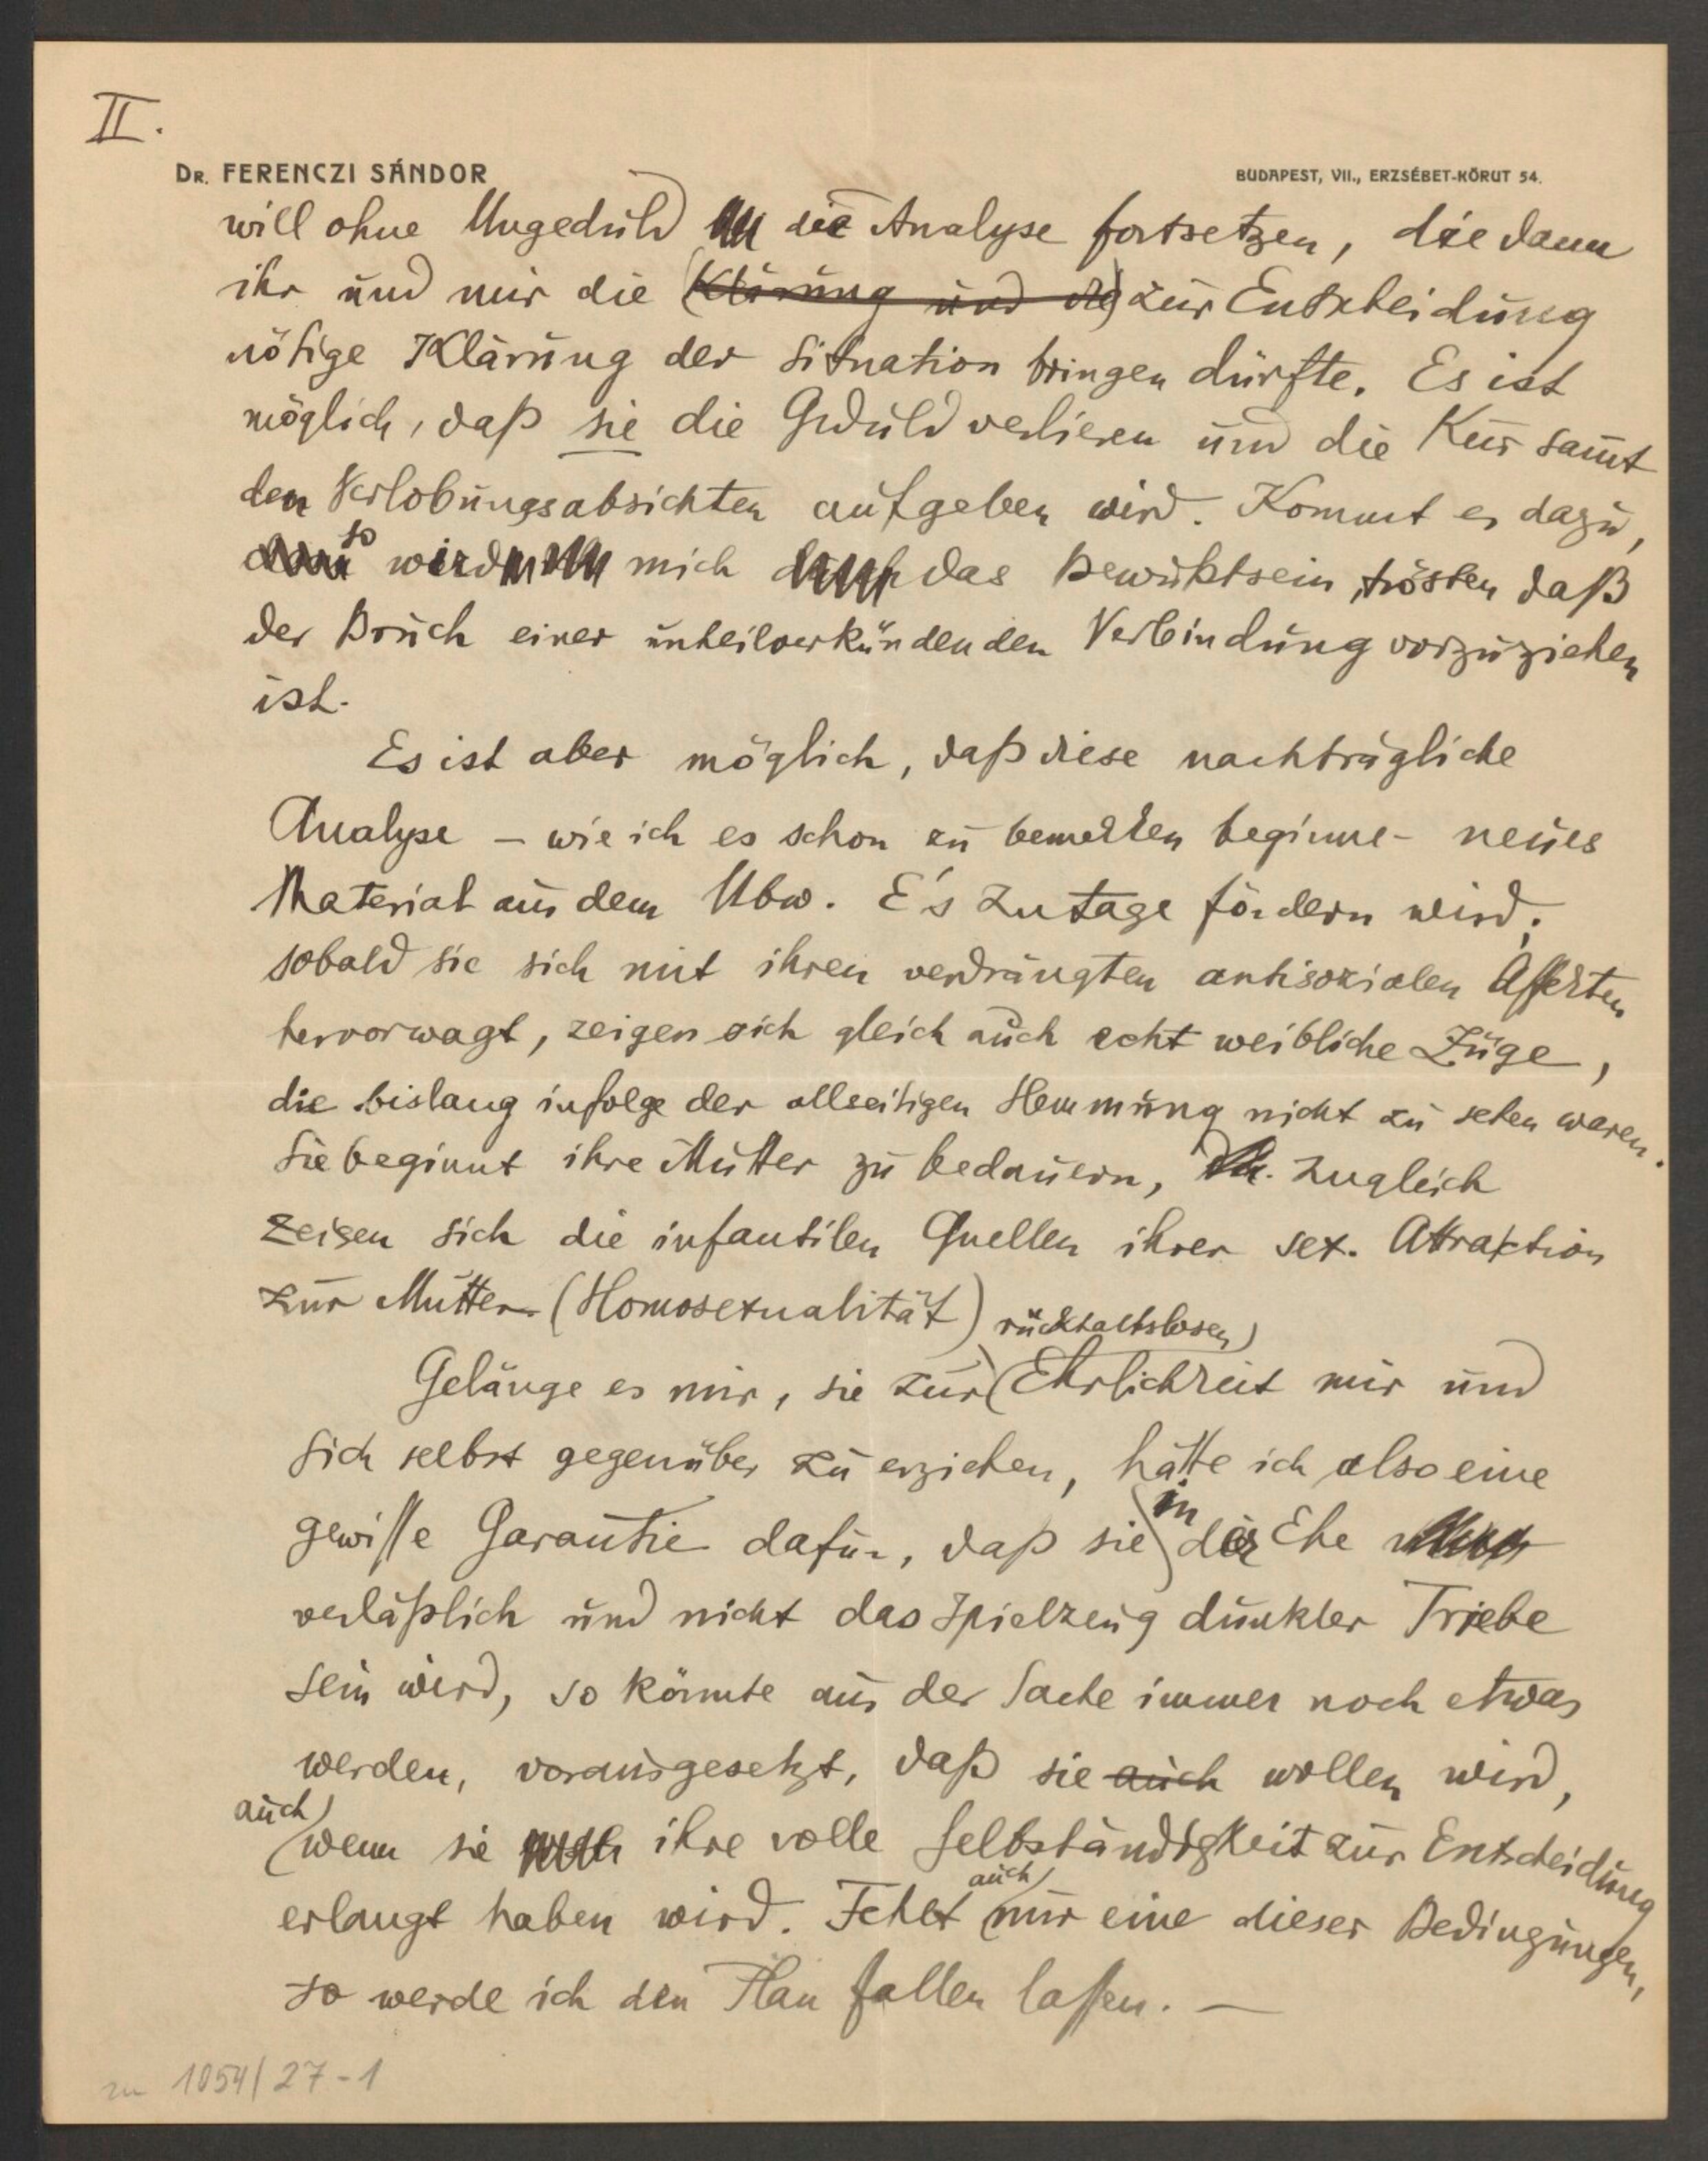 II.
Dr. FERENCZI SÁNDOR
BUDAPEST, VII., ERZSÉBET-KÖRUT 54.
will ohne Ungeduld die Analyse fortsetzen, die dann
ihr und mir die (Klärung und die) zur Entscheidung
nötige Klärung der Situation bringen dürfte. Es ist
möglich, daß sie die Geduld verlieren und die Kur samt
den Verlobungsabsichten aufgeben wird. Kommt es dazu,
so wird mich das Bewußtsein trösten daß
der Bruch einer unheilverkündenden Verbindung vorzuziehen
ist.
Es ist aber möglich, daß diese nachträgliche
Analyse – wie ich es schon zu bemerken beginne – neues
Material aus dem Ubw. E's zutage fördern wird;
sobald sie sich mit ihren verdrängten antisozialen Affekten
hervorwagt, zeigen sich gleich auch echt weibliche Züge,
die bislang infolge der allseitigen Hemmung nicht zu sehen waren.
Sie beginnt ihre Mutter zu bedauern, zugleich
zeigen sich die infantilen Quellen ihrer sex. Attraktion
zur Mutter (Homosexualität)
Gelänge es mir, sie zur rückhaltslosen Ehrlichkeit mir und
sich selbst gegenüber zu erziehen, hätte ich also eine
gewisse Garantie dafür, daß sie in der Ehe
verläßlich und nicht das Spielzeug dunkler Triebe
sein wird, so könnte aus der Sache immer noch etwas
werden, vorausgesetzt, daß sie auch wollen wird,
auch wenn sie ihre volle Selbständigkeit zur Entscheidung
erlangt haben wird. Fehlt auch nur eine dieser Bedingungen,
so werde ich den Plan fallen lassen. —
zu 1054/27-1